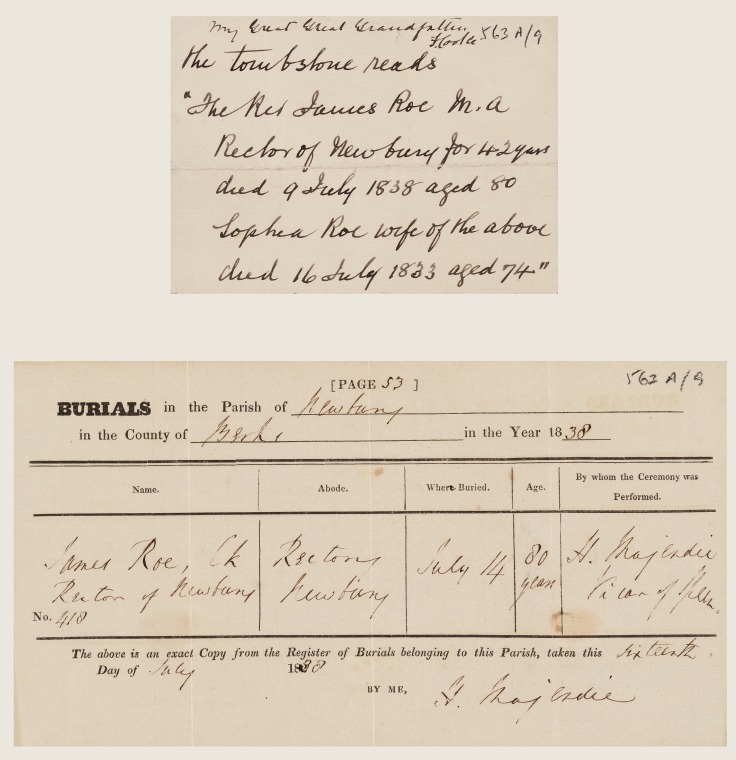 My Great Great Grandfather
563 A/9
the tombstone reads
"The Rev James Roe M.A
Rector of Newbury for 42 years
died 9 July 1838 aged 80
Sophia Roe wife of the above
died 16 July 1833 aged 74"
[PAGE 53 ]
563 A/9
BURIALS in the Parish of Newbury
in the County of Berks in the Year 1838
Name. Abode. When Buried. Age. By whom the Ceremony was Performed.
James Roe, Ck Rectory July 14 80 H. Majendie
Rector of Newbury Newbury years Vicar of Speen.
No. 418
The above is an exact Copy from the Register of Burials belonging to this Parish, taken this Sixteenth
Day of July 1838
BY ME, H. Majendie